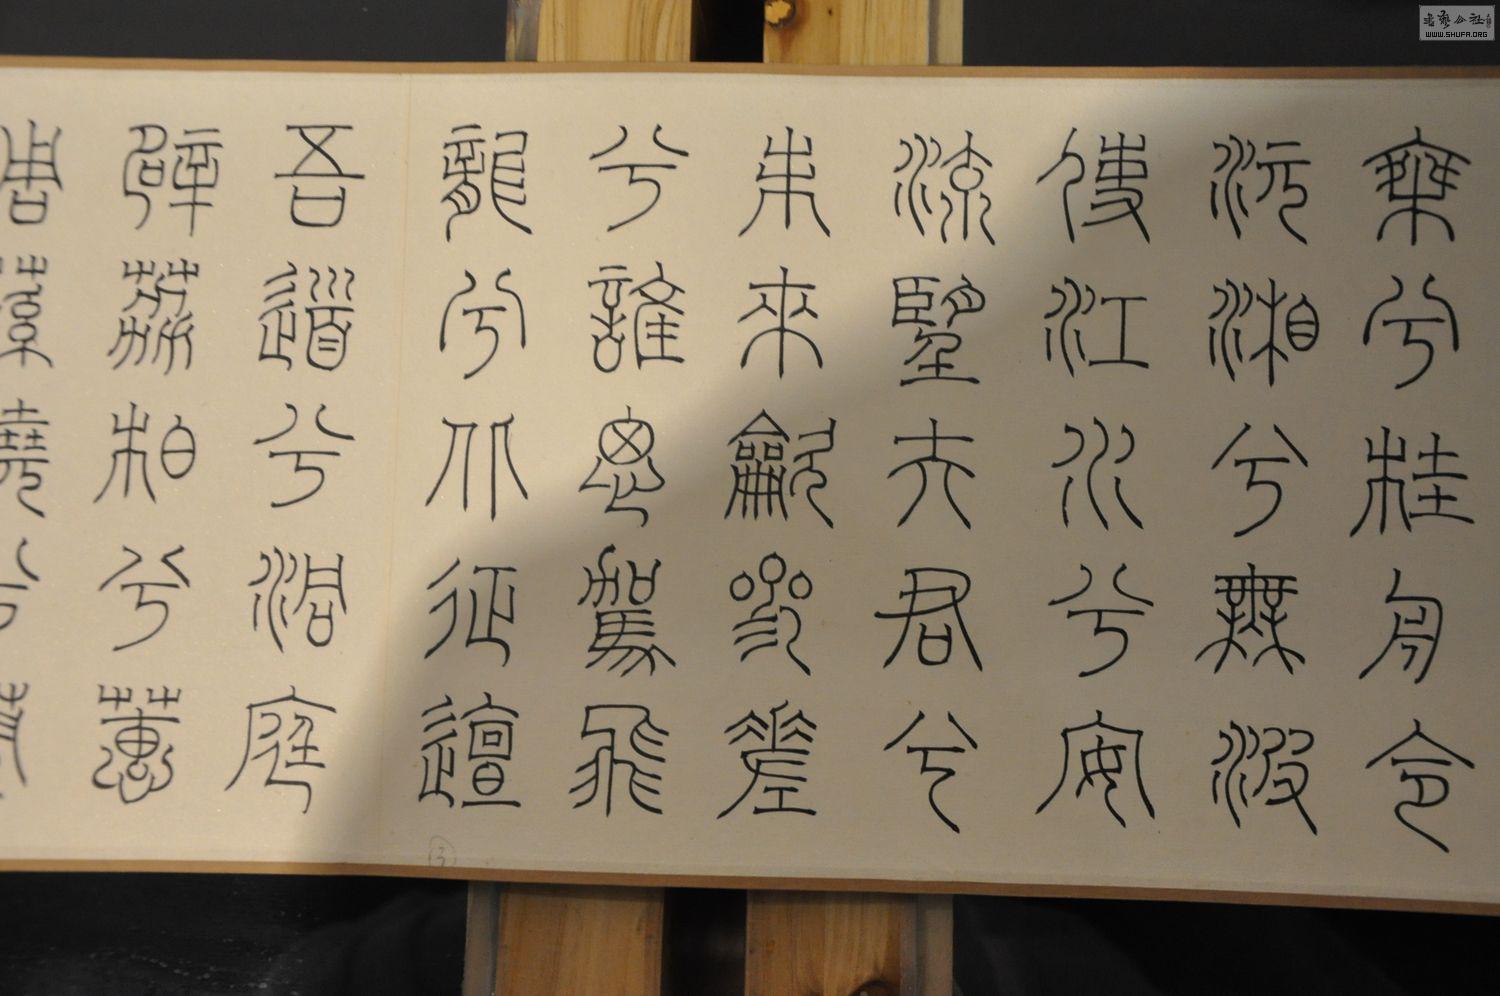 乘兮桂舟令
沅湘兮無波
使江水兮安
流望夫君兮
未來龡參差
兮誰思駕飛
龍兮北征邅
吾道兮洞庭
辟荔柏兮蕙
蓀橈兮蘭
書藝公社
WWW.SHUFA.ORG